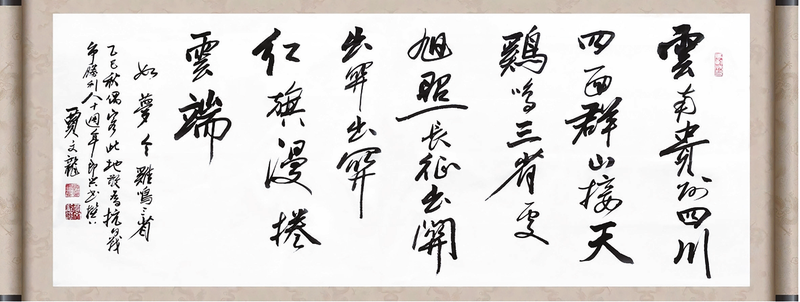 雲南貴州四川
四面群山接天
鷄鳴三省處
旭照長征出關
出關出關
紅旗漫捲
雲端
如夢令雞鳴三省
乙巳秋偶此地抗戰
勝利八十週年即
賈文龍